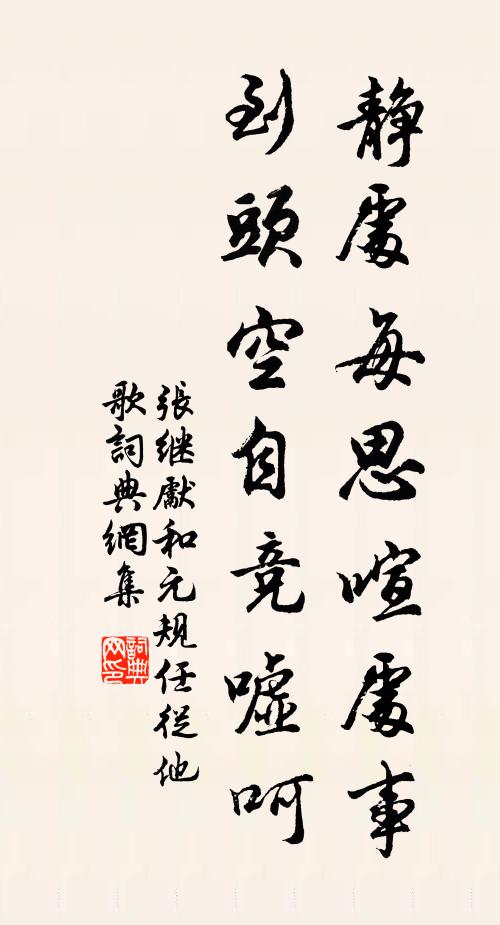 靜處每思喧處事
到頭空自竞嘘呵
張继獻和元规任從他
歌詞典網集
詞典
网印